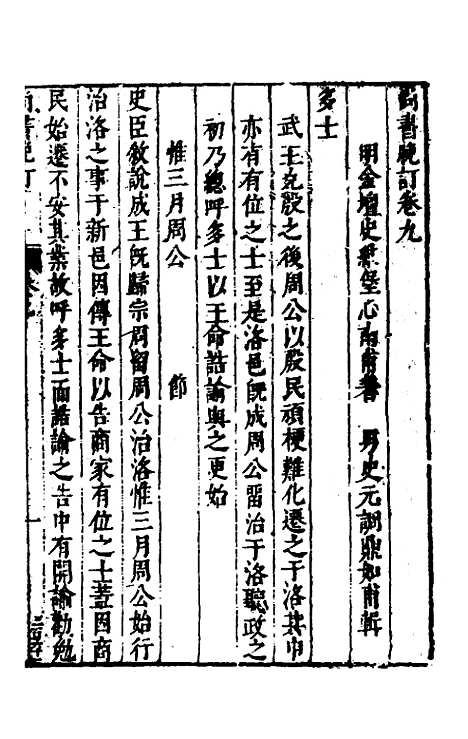 尚書晚訂卷九
明金壇史維堡心南甫著　男史元調鼎如甫輯
多士
武王克殷之後周公以殷民頑梗難化遷之于洛其中
亦有有位之士至是洛邑既成周公留治于洛聽政之
初乃總呼多士以王命誥諭與之更始
惟三月周公　節
史臣敘說成王既歸宗周留周公治洛惟三月周公始行
治洛之事于新邑因傳王命以告商家有位之士蓋因商
民始遷不安其業故呼多士而誥諭之告中有開諭勸勉
尚書晚訂　卷九　一